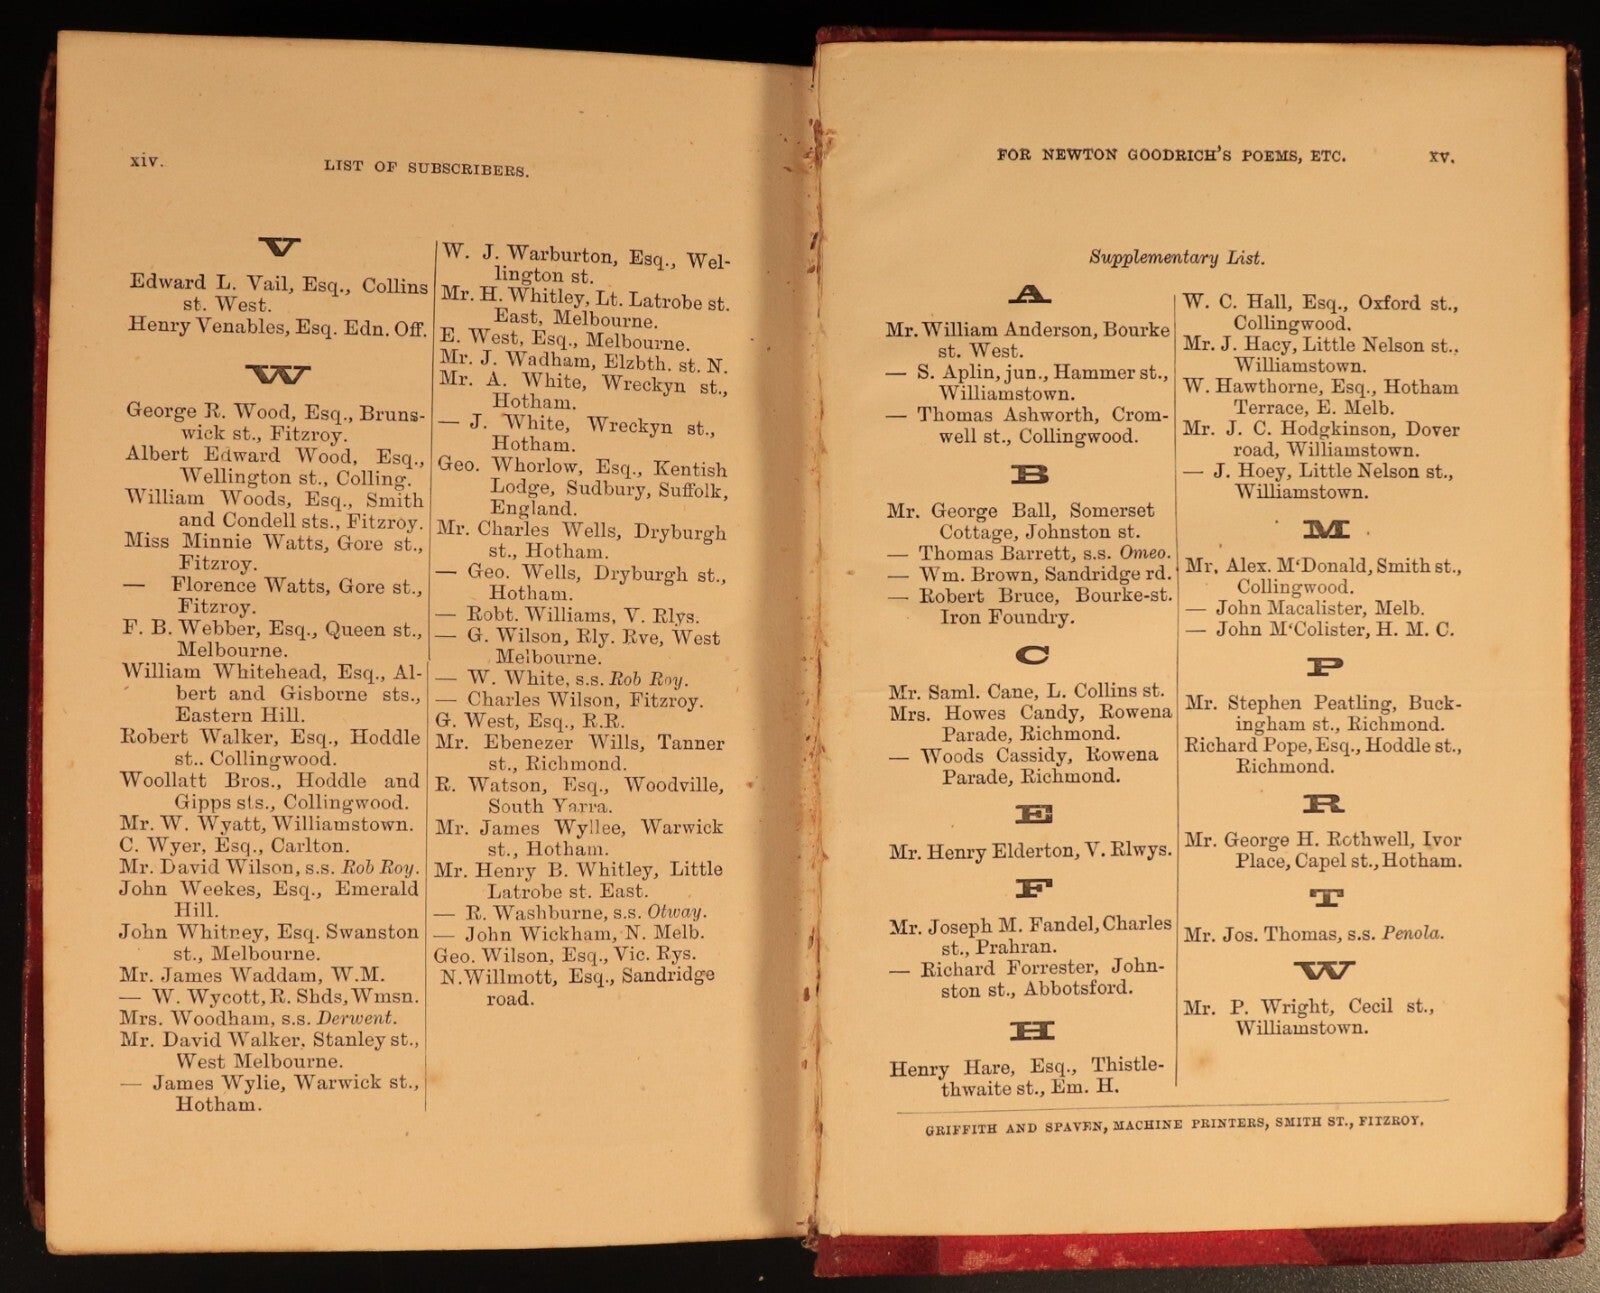 xiv.
LIST OF SUBSCRIBERS.
V
Edward L. Vail, Esq., Collins
st. West.
Henry Venables, Esq. Edn. Off.
W
George R. Wood, Esq., Bruns-
wick st., Fitzroy.
Albert Edward Wood, Esq.,
Wellington st., Colling.
William Woods, Esq., Smith
and Condell sts., Fitzroy.
Miss Minnie Watts, Gore st.,
Fitzroy.
— Florence Watts, Gore st.,
Fitzroy.
F. B. Webber, Esq., Queen st.,
Melbourne.
William Whitehead, Esq., Al-
bert and Gisborne sts.,
Eastern Hill.
Robert Walker, Esq., Hoddle
st.. Collingwood.
Woollatt Bros., Hoddle and
Gipps sts., Collingwood.
Mr. W. Wyatt, Williamstown.
C. Wyer, Esq., Carlton.
Mr. David Wilson, s.s. Rob Roy.
John Weekes, Esq., Emerald
Hill.
John Whitney, Esq. Swanston
st., Melbourne.
Mr. James Waddam, W.M.
— W. Wycott, R. Shds, Wmsn.
Mrs. Woodham, s.s. Derwent.
Mr. David Walker, Stanley st.,
West Melbourne.
— James Wylie, Warwick st.,
Hotham.
W. J. Warburton, Esq., Wel-
lington st.
Mr. H. Whitley, Lt. Latrobe st.
East, Melbourne.
E. West, Esq., Melbourne.
Mr. J. Wadham, Elzbth. st. N.
Mr. A. White, Wreckyn st.,
Hotham.
— J. White, Wreckyn st.,
Hotham.
Geo. Whorlow, Esq., Kentish
Lodge, Sudbury, Suffolk,
England.
Mr. Charles Wells, Dryburgh
st., Hotham.
— Geo. Wells, Dryburgh st.,
Hotham.
— Robt. Williams, V. Rlys.
— G. Wilson, Rly. Rve, West
Melbourne.
— W. White, s.s. Rob Roy.
— Charles Wilson, Fitzroy.
G. West, Esq., R.R.
Mr. Ebenezer Wills, Tanner
st., Richmond.
R. Watson, Esq., Woodville,
South Yarra.
Mr. James Wyllee, Warwick
st., Hotham.
Mr. Henry B. Whitley, Little
Latrobe st. East.
— R. Washburne, s.s. Otway.
— John Wickham, N. Melb.
Geo. Wilson, Esq., Vic. Rys.
N. Willmott, Esq., Sandridge
road.
FOR NEWTON GOODRICH'S POEMS, ETC.
xv.
Supplementary List.
A
Mr. William Anderson, Bourke
st. West.
— S. Aplin, jun., Hammer st.,
Williamstown.
— Thomas Ashworth, Crom-
well st., Collingwood.
B
Mr. George Ball, Somerset
Cottage, Johnston st.
— Thomas Barrett, s.s. Omeo.
— Wm. Brown, Sandridge rd.
— Robert Bruce, Bourke-st.
Iron Foundry.
C
Mr. Saml. Cane, L. Collins st.
Mrs. Howes Candy, Rowena
Parade, Richmond.
— Woods Cassidy, Rowena
Parade, Richmond.
E
Mr. Henry Elderton, V. Rlwys.
F
Mr. Joseph M. Fandel, Charles
st., Prahran.
— Richard Forrester, John-
ston st., Abbotsford.
H
Henry Hare, Esq., Thistle-
thwaite st., Em. H.
W. C. Hall, Esq., Oxford st.,
Collingwood.
Mr. J. Hacy, Little Nelson st.,
Williamstown.
W. Hawthorne, Esq., Hotham
Terrace, E. Melb.
Mr. J. C. Hodgkinson, Dover
road, Williamstown.
— J. Hoey, Little Nelson st.,
Williamstown.
M
Mr. Alex. M‘Donald, Smith st.,
Collingwood.
— John Macalister, Melb.
— John M‘Colister, H. M. C.
P
Mr. Stephen Peatling, Buck-
ingham st., Richmond.
Richard Pope, Esq., Hoddle st.,
Richmond.
R
Mr. George H. Rothwell, Ivor
Place, Capel st., Hotham.
T
Mr. Jos. Thomas, s.s. Penola.
W
Mr. P. Wright, Cecil st.,
Williamstown.
GRIFFITH AND SPAVEN, MACHINE PRINTERS, SMITH ST., FITZROY.